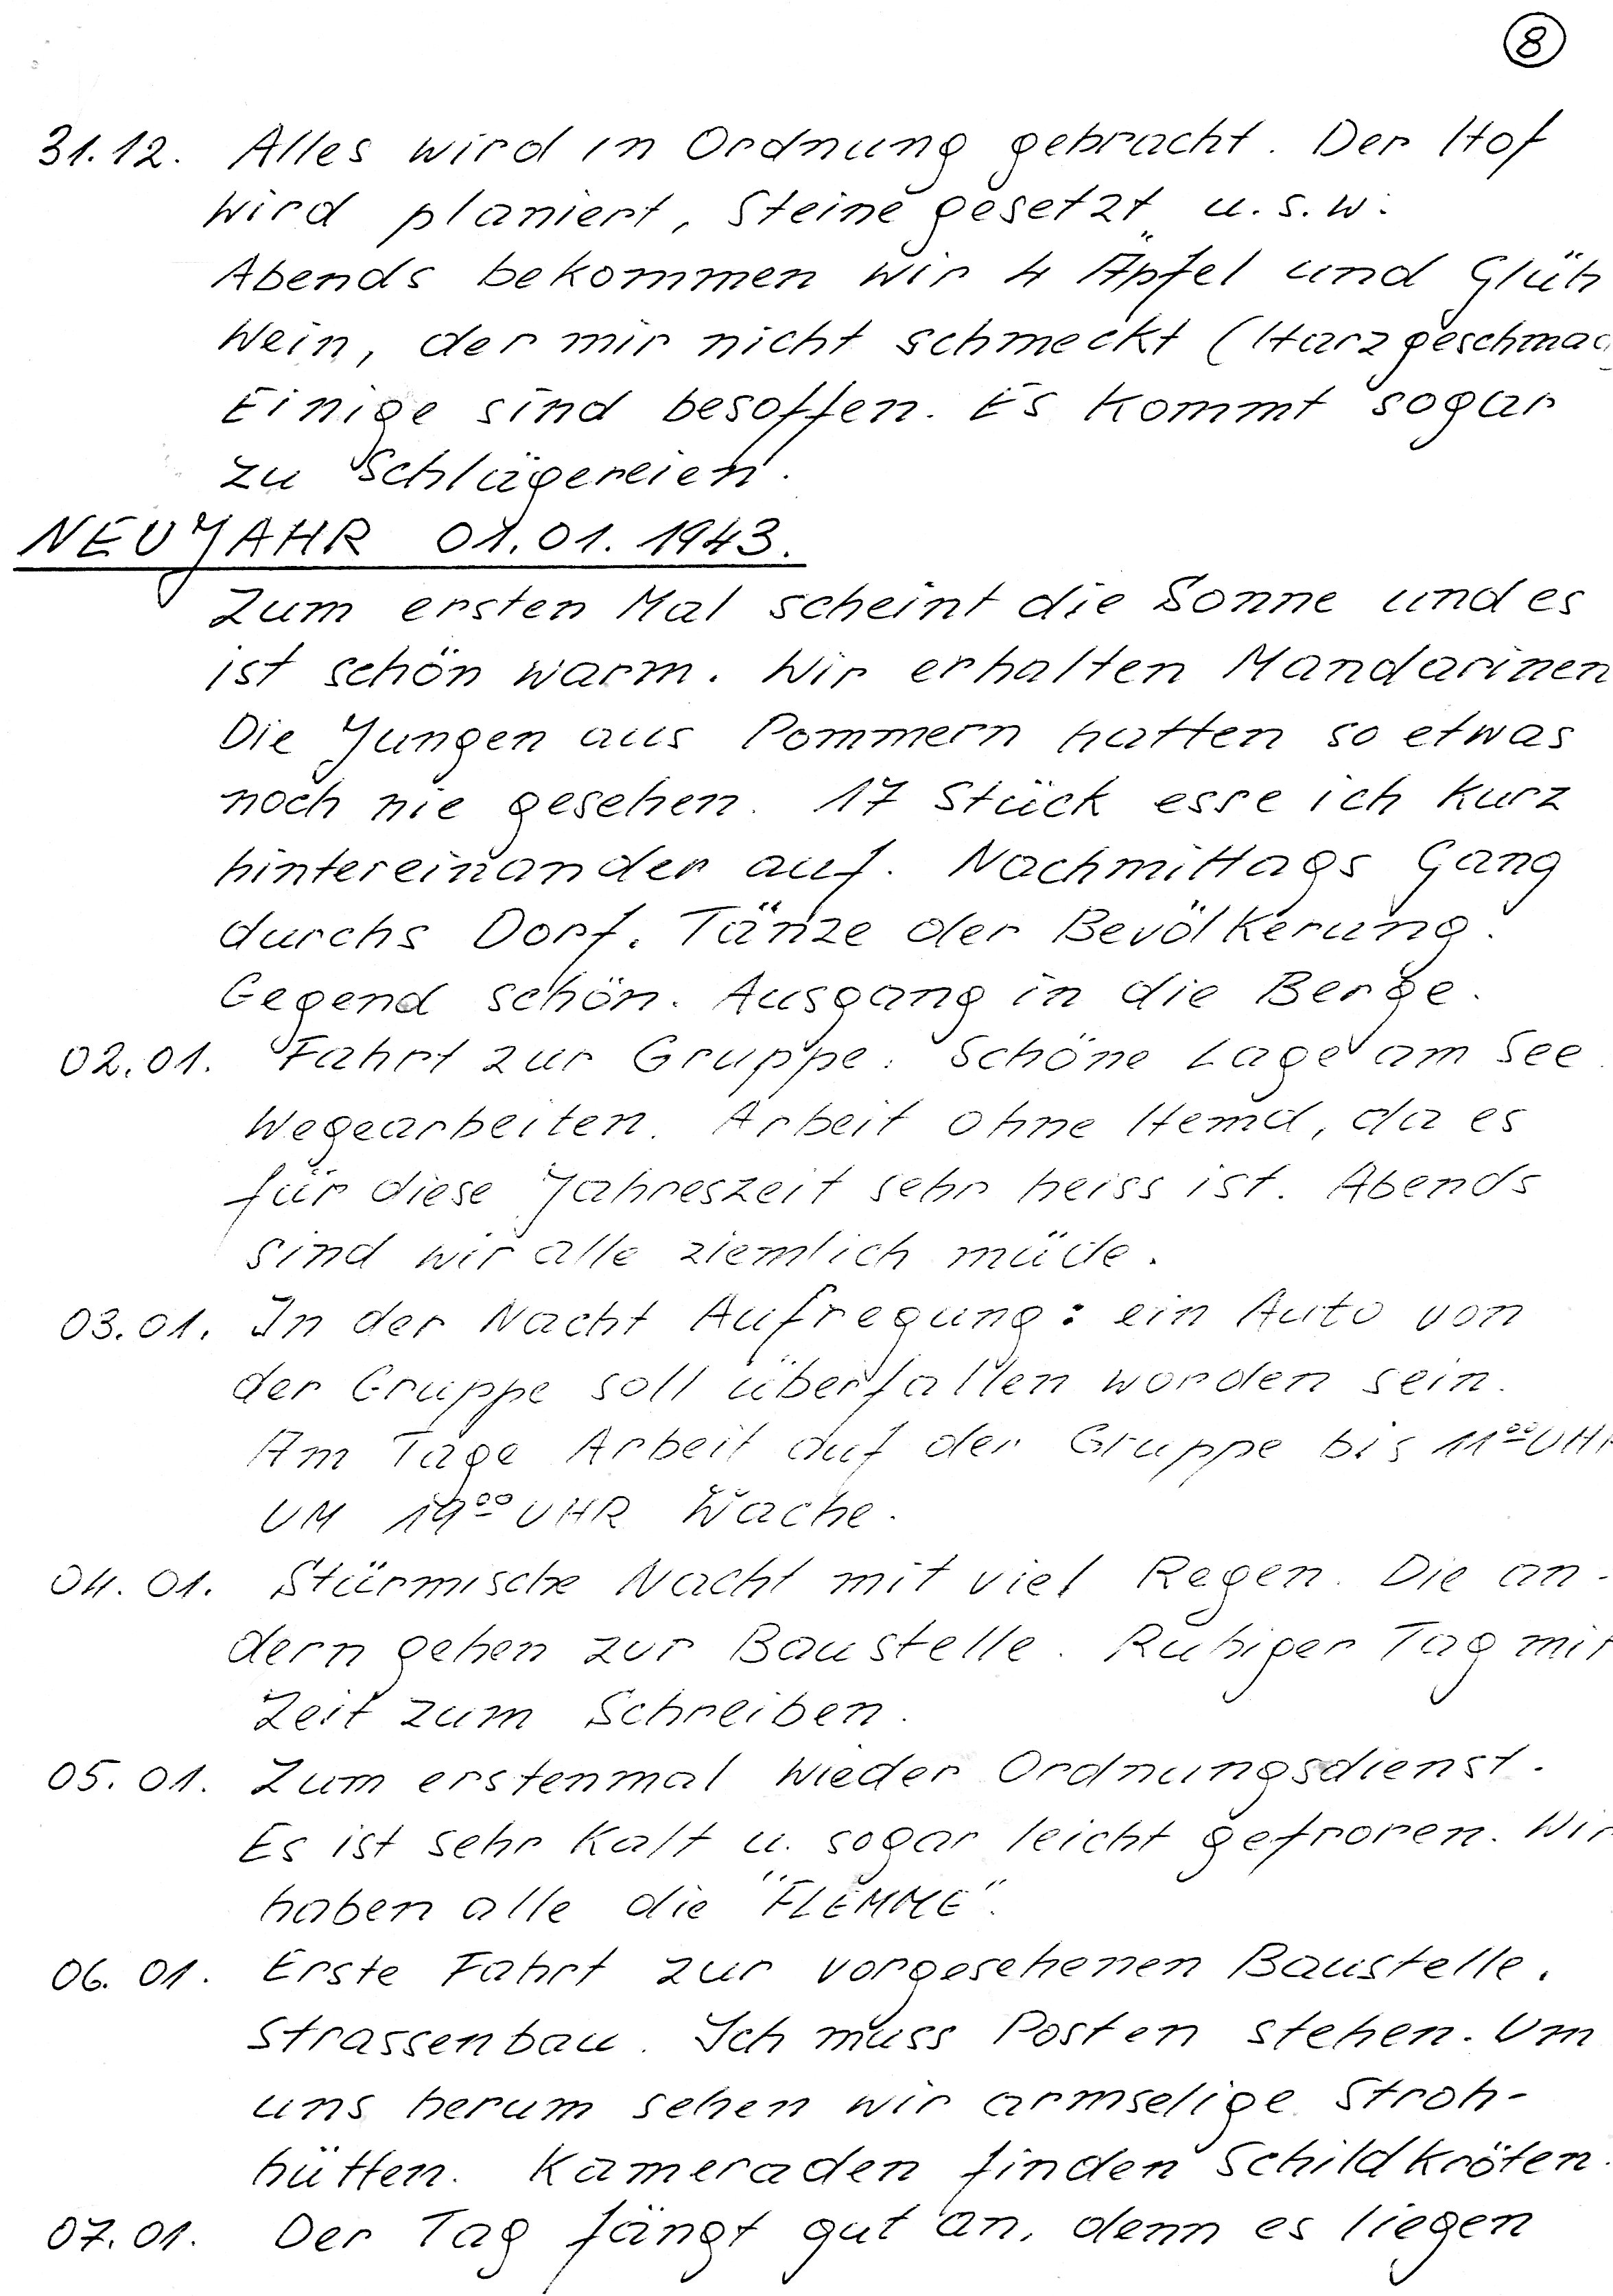 8
31.12. Alles wird in Ordnung gebracht. Der Hof
wird planiert, Steine gesetzt u.s.w.
Abends bekommen wir 4 Äpfel und Glüh
Wein, der mir nicht schmeckt (Harzgeschmac
Einige sind besoffen. Es kommt sogar
zu Schlägereien.
NEUJAHR 01.01.1943.
Zum ersten Mal scheint die Sonne und es
ist schön warm. Wir erhalten Mandarinen
Die Jungen aus Pommern hatten so etwas
noch nie gesehen. 17 Stück esse ich kurz
hintereinander auf. Nachmittags Gang
durchs Dorf. Tänze der Bevölkerung.
Gegend schön. Ausgang in die Berge.
02.01. Fahrt zur Gruppe. Schöne Lage am See.
Wegearbeiten. Arbeit ohne Hemd, da es
für diese Jahreszeit sehr heiss ist. Abends
sind wir alle ziemlich müde.
03.01. In der Nacht Aufregung: ein Auto von
der Gruppe soll überfallen worden sein.
Am Tage Arbeit auf der Gruppe bis 11⁰⁰ UHR
UM 19⁰⁰ UHR Wache.
04.01. Stürmische Nacht mit viel Regen. Die an-
dern gehen zur Baustelle. Ruhiger Tag mit
Zeit zum Schreiben.
05.01. Zum erstenmal wieder Ordnungsdienst.
Es ist sehr kalt u. sogar leicht gefroren. Wir
haben alle die "FLEMME".
06.01. Erste Fahrt zur vorgesehenen Baustelle.
Strassenbau. Ich muss Posten stehen. Um
uns herum sehen wir armselige Stroh-
hütten. Kameraden finden Schildkröten.
07.01. Der Tag fängt gut an, denn es liegen